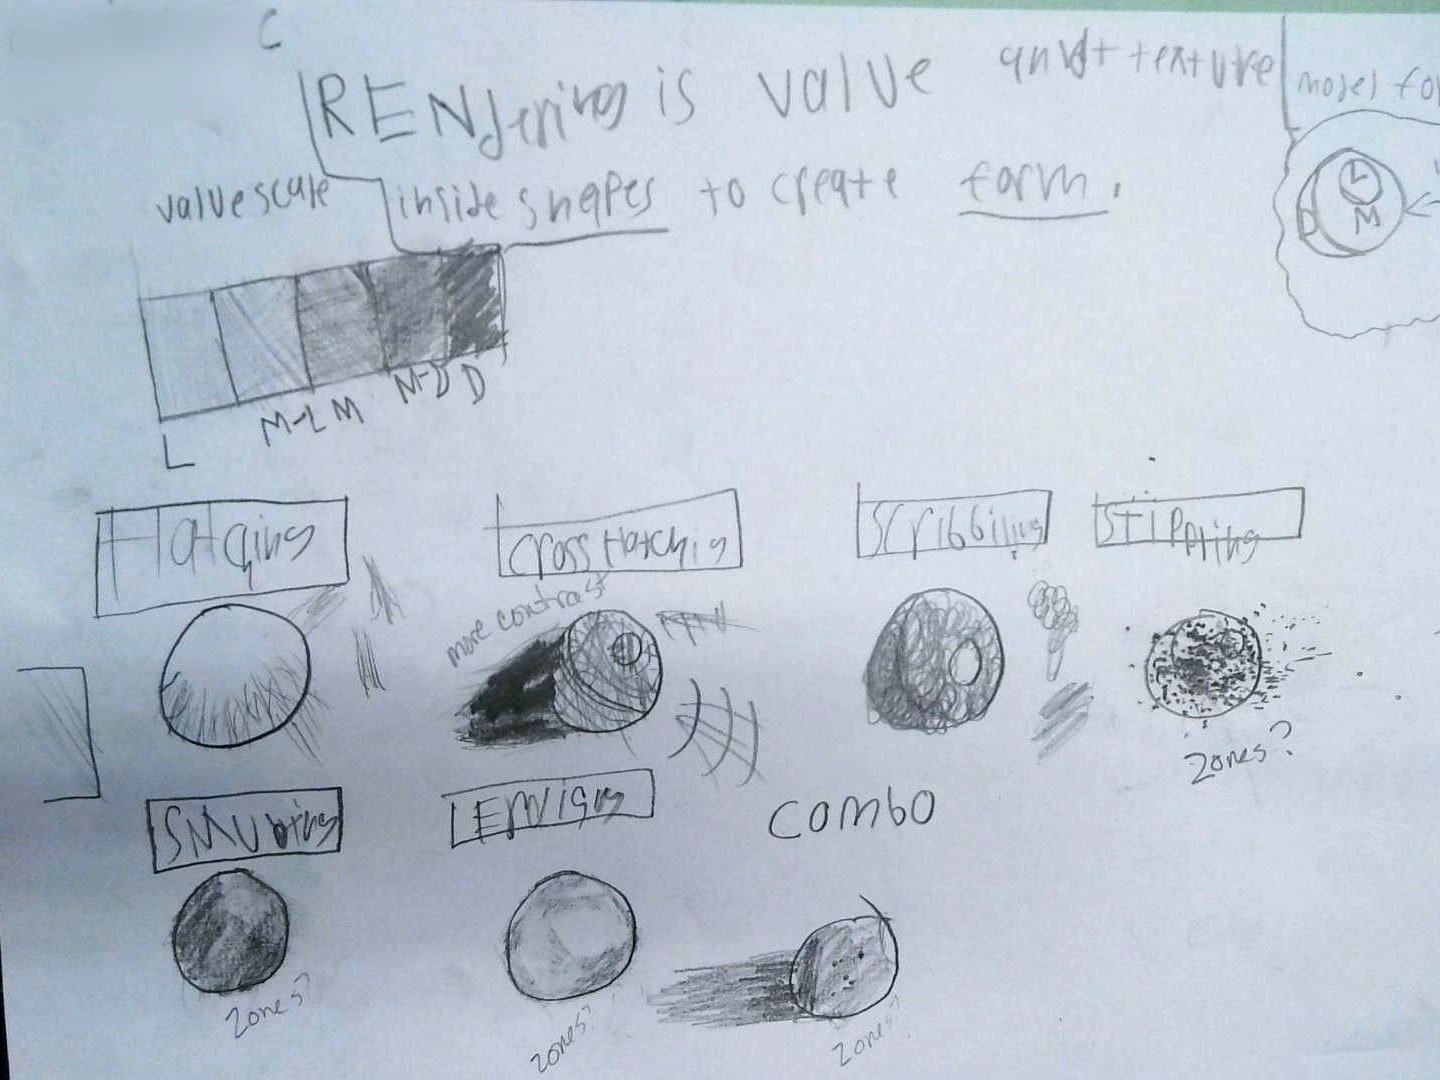 C
RENdering is value and texture
inside shapes to create form.
model fo
L
D
M
value scale
L M-L M M-D D
Hatching
Cross Hatching
Scribbiling
Stippling
more contrast
zones?
SMUDging
combo
zones?
zones?
zones?